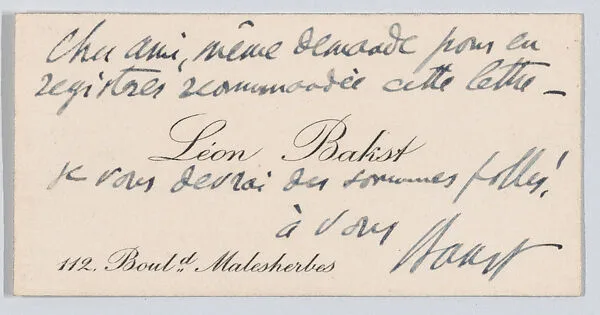 Cher ami, même demande pour en
registrer recommandée cette lettre —
Léon Bakst
je vous devrai des sommes folles!
à vous
Bakst
112. Boul.d Malesherbes